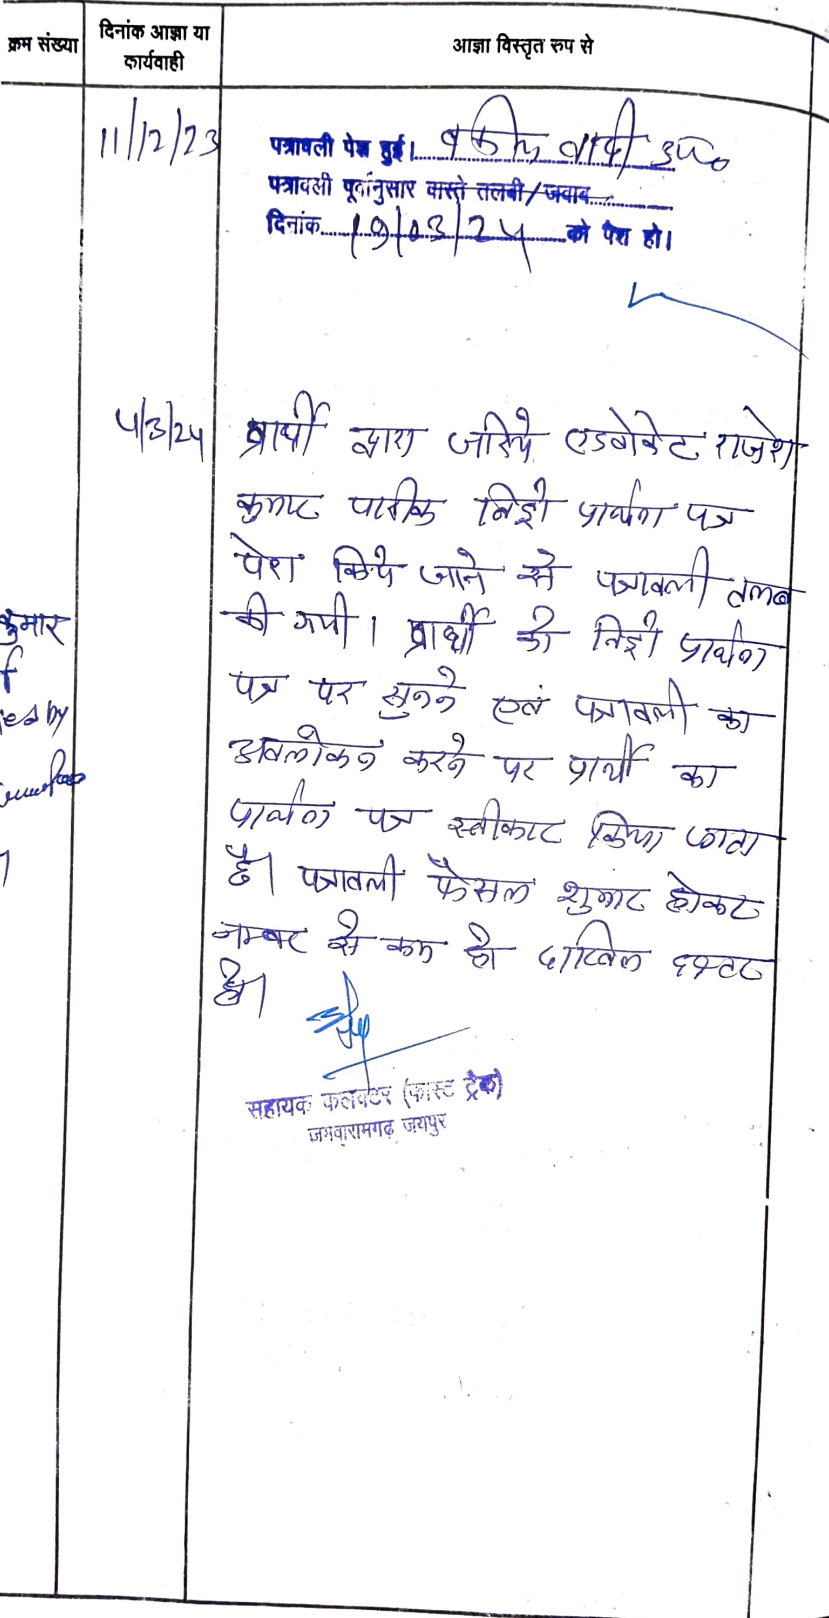 क्रम संख्या
दिनांक आज्ञा या
कार्यवाही
आज्ञा विस्तृत रुप से
11/12/23
पत्रावली पेश हुई। वकील वादी उप०
पत्रावली पूर्वानुसार वास्ते तलबी/जवाब
दिनांक 19/03/24 को पेश हो।
4/3/24
प्रार्थी द्वारा जरिये एडवोकेट राजेश
कुमार पारीक विड्रो प्रार्थना पत्र
पेश किये जाने से पत्रावली तलब
की गयी। प्रार्थी को विड्रो प्रार्थना
पत्र पर सुनने एवं पत्रावली का
अवलोकन करने पर प्रार्थी का
प्रार्थना पत्र स्वीकार किया जाता
है। पत्रावली फैसल शुमार होकर
नम्बर से कम हो दाखिल दफ्तर
हो।
कुमार
ed by
सहायक कलक्टर (फास्ट ट्रेक)
जमवारामगढ़ जयपुर